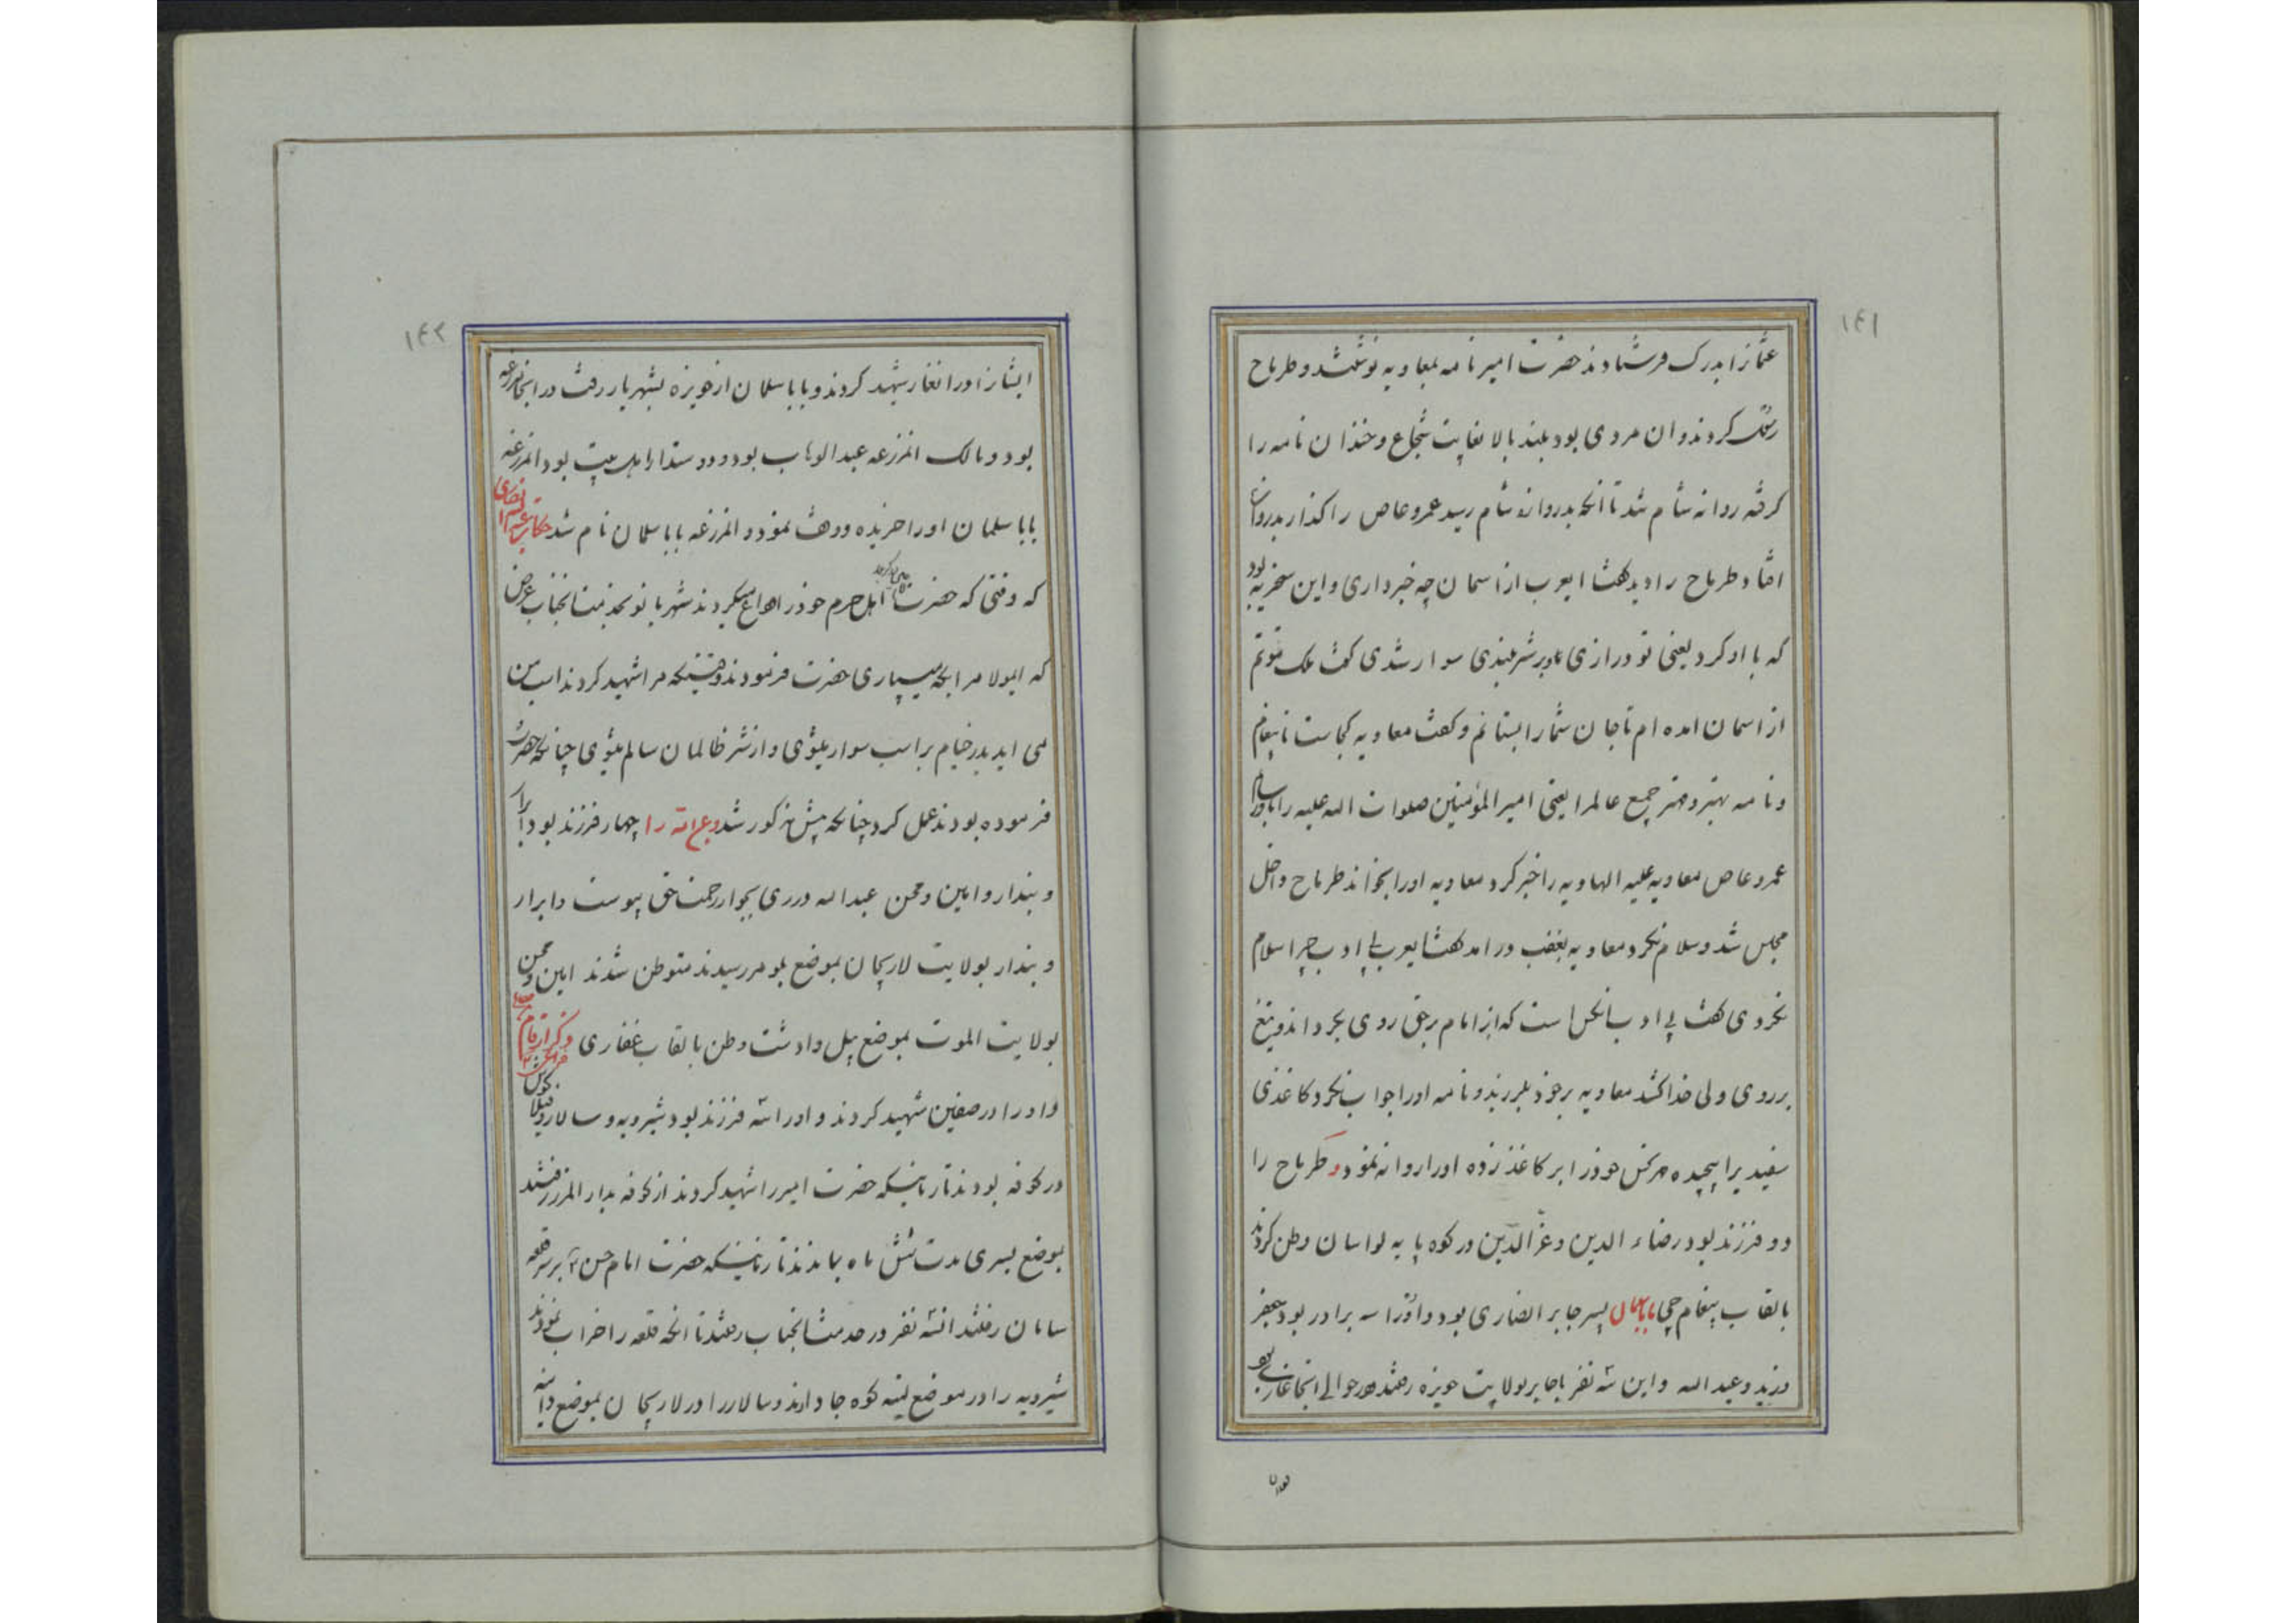 ۱۴۱
عثمانرا بدرک فرستادند حضرت امیر نامه بمعاویه نوشتند و طرماح
کردند و ان مردی بود بلند بالا بغایت شجاع و خندان نامه را
کرفته روانه شام شد تا انکه بدروازه شام رسید عمرو عاص را کذار بدروازه
افتاد طرماح را دید کفت ایعرب از اسمان چه خبر داری و این سخریه بود
که با او کرد یعنی تو درازی و بر شتر بلندی سوار شدی کفت ملک موتم
از اسمان امده ام تا جان شما را بستانم و کفت معاویه کجاست تا پیغام
و نامه بهتر و مهتر جمیع عالمرا یعنی امیر المؤمنین صلوات الله علیه را باو رسانم
عمرو عاص معاویه علیه الهاویه را خبر کرد معاویه اورا بخواند طرماح داخل
مجلس شد و سلام نکرد معاویه بغضب در امد کفت ایعرب بی ادب چرا سلام
نکردی کفت بی ادب انکس است که از امام بر حق روی بکرداند و تیغ
بر روی ولی خدا کشد معاویه بر خود بلرزید و نامه اورا جواب نکرد کاغذی
سفید برا پیچیده مهر نحس خودرا بر کاغذ زده اورا روانه نمود و طرماح را
دو فرزند بود رضاء الدین و عز الدین در کوه پایه لواسان وطن کردند
بالقاب پیغام چی بابا سلمان پسر جابر انصاری بود و اورا سه برادر بود جعفر
و زید و عبد الله و این سه نفر با جابر بولایت حویزه رفتند در حوالی انجا غاری بود
۱۴۲
ایشانرا در انغار شهید کردند و بابا سلمان از حویزه بشهریار رفت در انجا مزرعه
بود و مالک انمزرعه عبد الوهاب بود و دوستدار اهل بیت بود انمزرعه
بابا سلمان اورا خریده و وقف نمود و انمزرعه بابا سلمان نام شد حکایت
که وقتی که حضرت اهل حرم خودرا وداع میکردند شهربانو بخدمت انجناب عرض
که ایمولا مرا بکه میسپاری حضرت فرمودند وقتیکه مرا شهید کردند اسب من
می اید بدر خیام بر اسب سوار میشوی و از شر ظالمان سالم میشوی چنانکه حضرت
فرموده بودند عمل کرد چنانکه پیش مذکور شد و را چهار فرزند بود ابرار
و بندار و امین و محسن عبد الله در ری بجوار رحمت حق پیوست و ابرار
و بندار بولایت لاریجان بموضع بلومر رسیدند متوطن شدند امین و محسن
بولایت الموت بموضع پیل وادشت وطن بالقاب غفاری
و او را در صفین شهید کردند و اورا سه فرزند بود شیرویه و سالار و
در کوفه بودند تا زمانیکه حضرت امیر را شهید کردند از کوفه بدار المرز رفتند
بموضع بسری مدت شش ماه بماندند تا زمانیکه حضرت امام حسن بر سر قلعه
سامان رفتند انسه نفر در خدمت انجناب رفتند تا انکه قلعه را خراب نمودند
شیرویه را در موضع لیته کوه جا دادند و سالار را در لاریجان بموضع